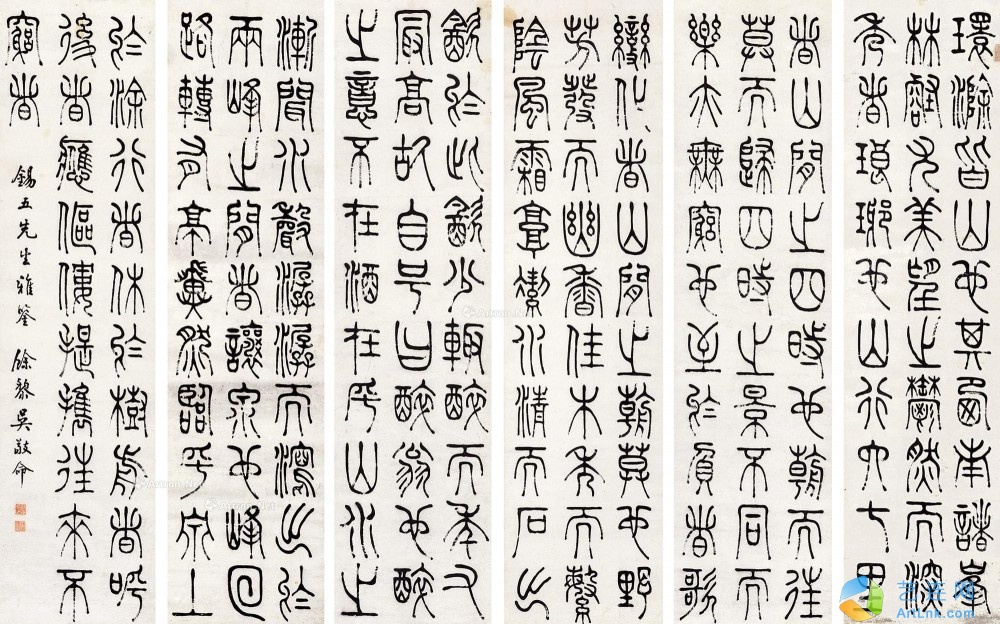 環滁皆山也其西南諸峯
林壑尤美望之鬱然而深
秀者琅琊也山行六七里
者山間之四時也朝而往
莫而歸四時之景不同而
樂亦無窮也至於負者歌
變化者山間之朝莫也野
芳發而幽香佳木秀而繁
陰風霜高絜水清而石出
飲於此飲少輒醉而年又
最高故自号曰醉翁也醉
之意不在酒在乎山水之
漸聞水聲潺潺而瀉出於
兩峰之間者讓泉也峰回
路轉有亭翼然臨乎泉上
於涂行者休於樹前者呼
後者應傴僂提攜往來不
窮者
錫五先生雅鑒 餘黎吳敬命
艺连网
ArtLnk.com